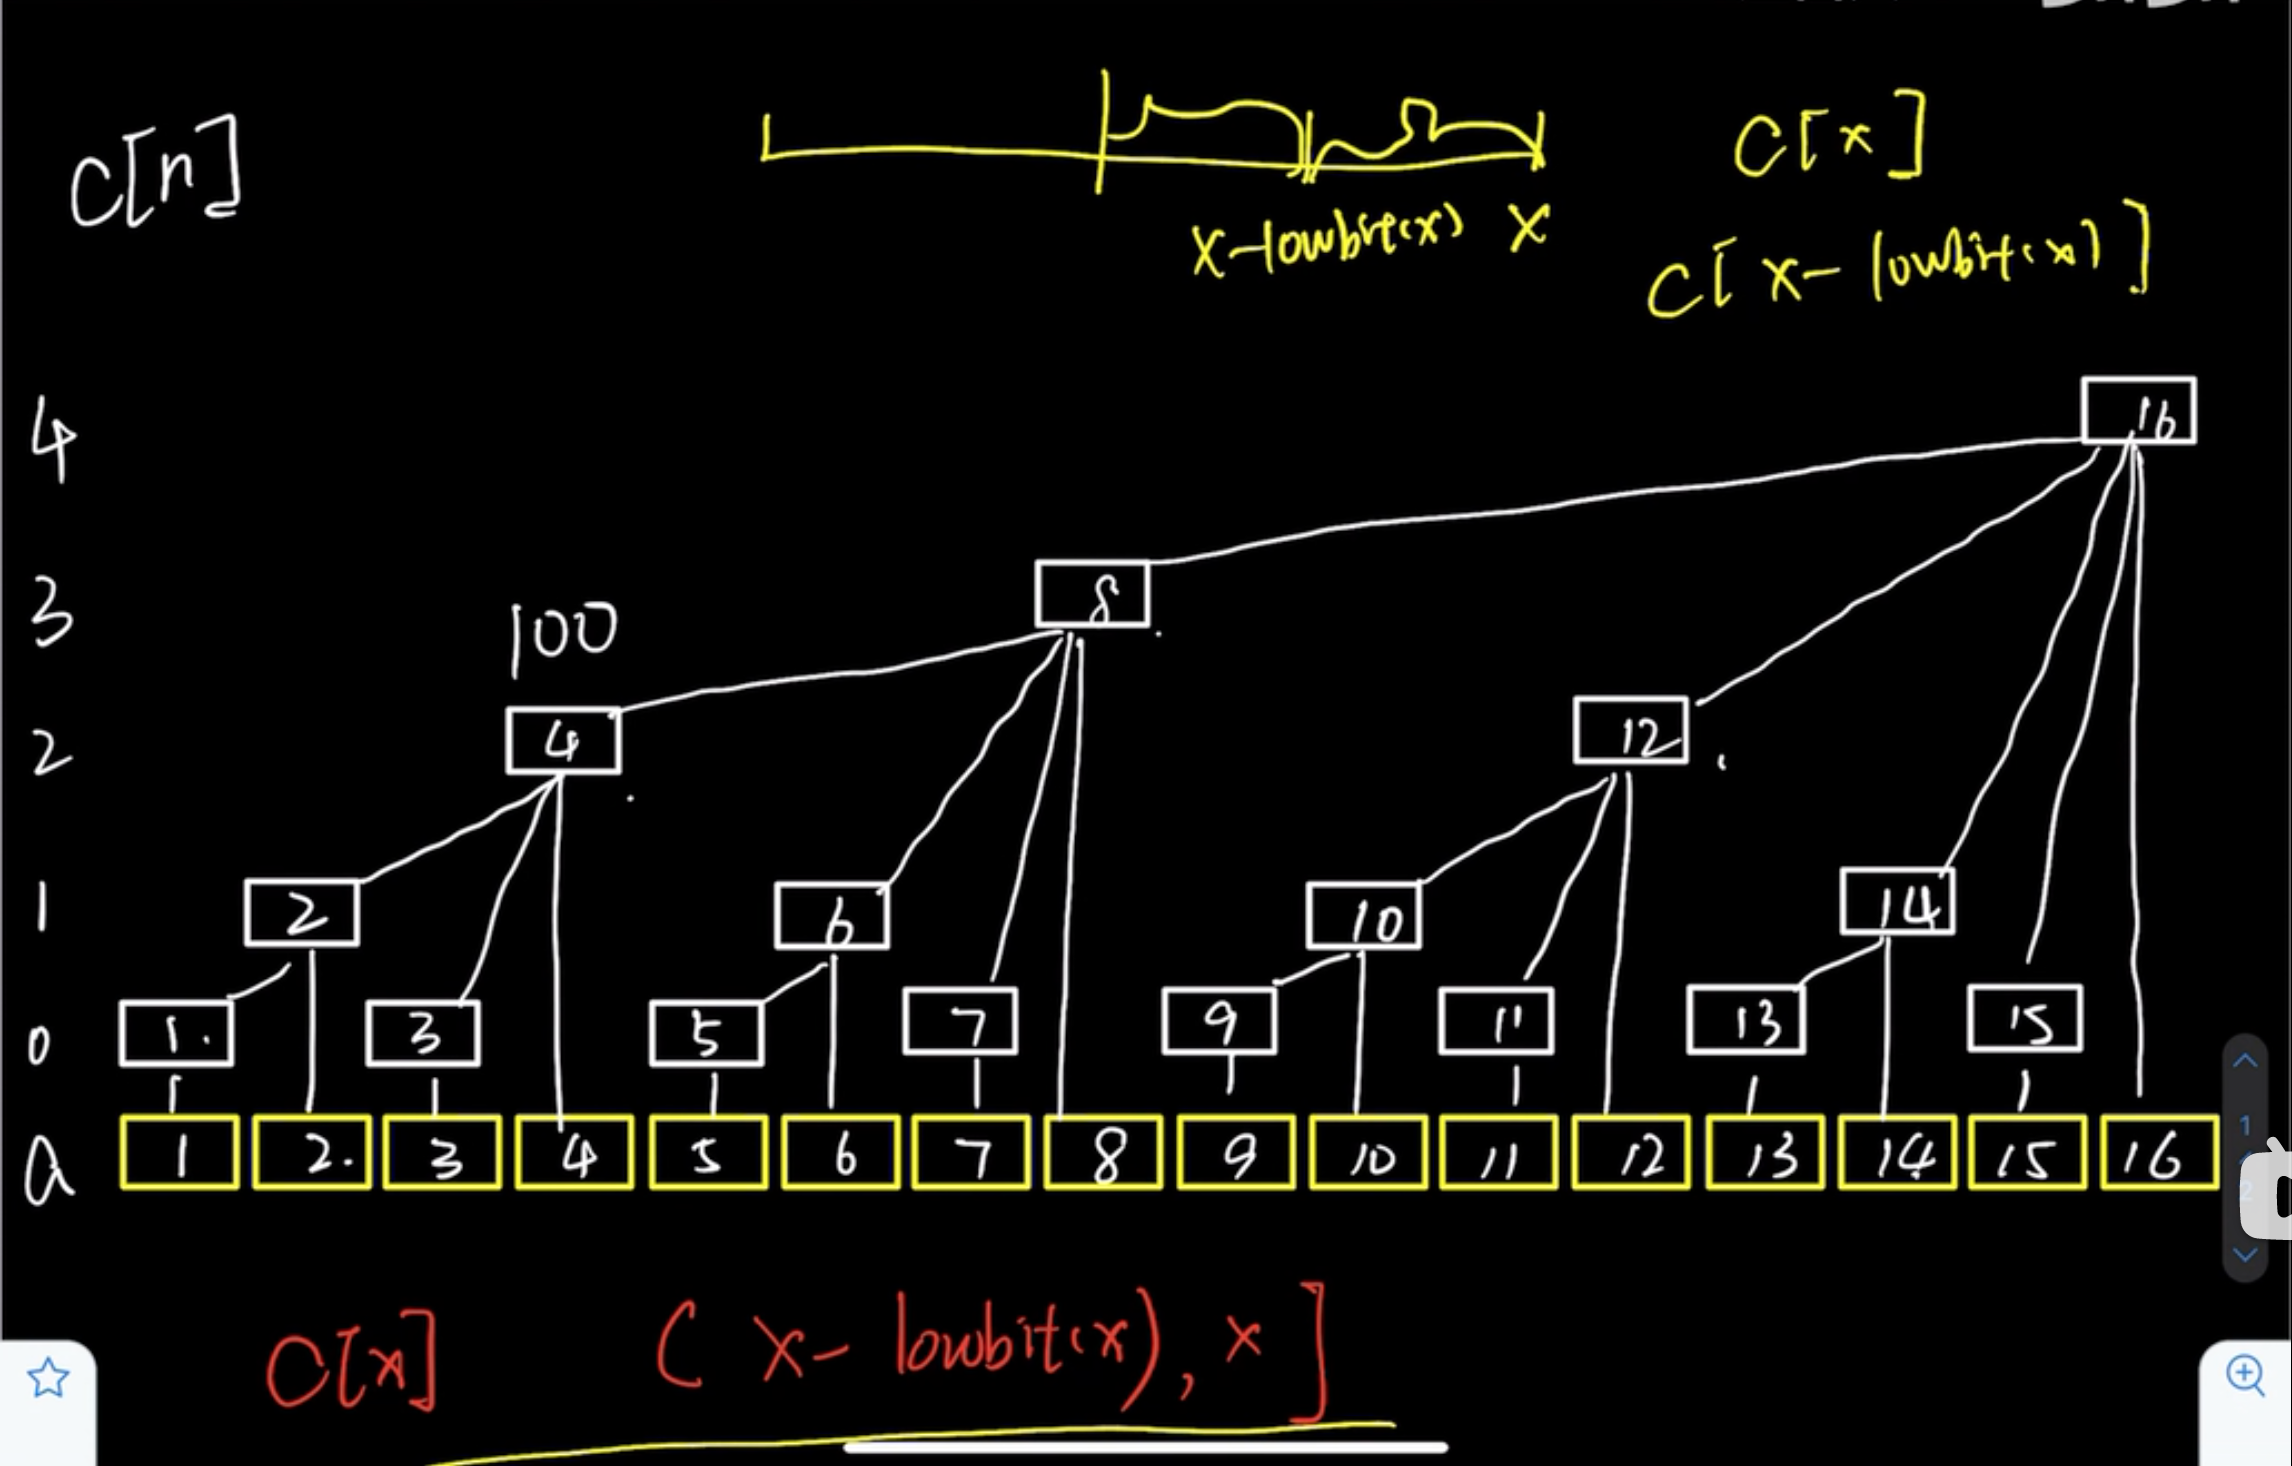 C[n]
C[x]
x-lowbit(x) x
C[x-lowbit(x)]
4
16
3
100
8
2
4
12
1
2 6 10 14
0
1. 3 5 7 9 11 13 15
a
1 2. 3 4 5 6 7 8 9 10 11 12 13 14 15 16
1
2
C[x] (x-lowbit(x), x]